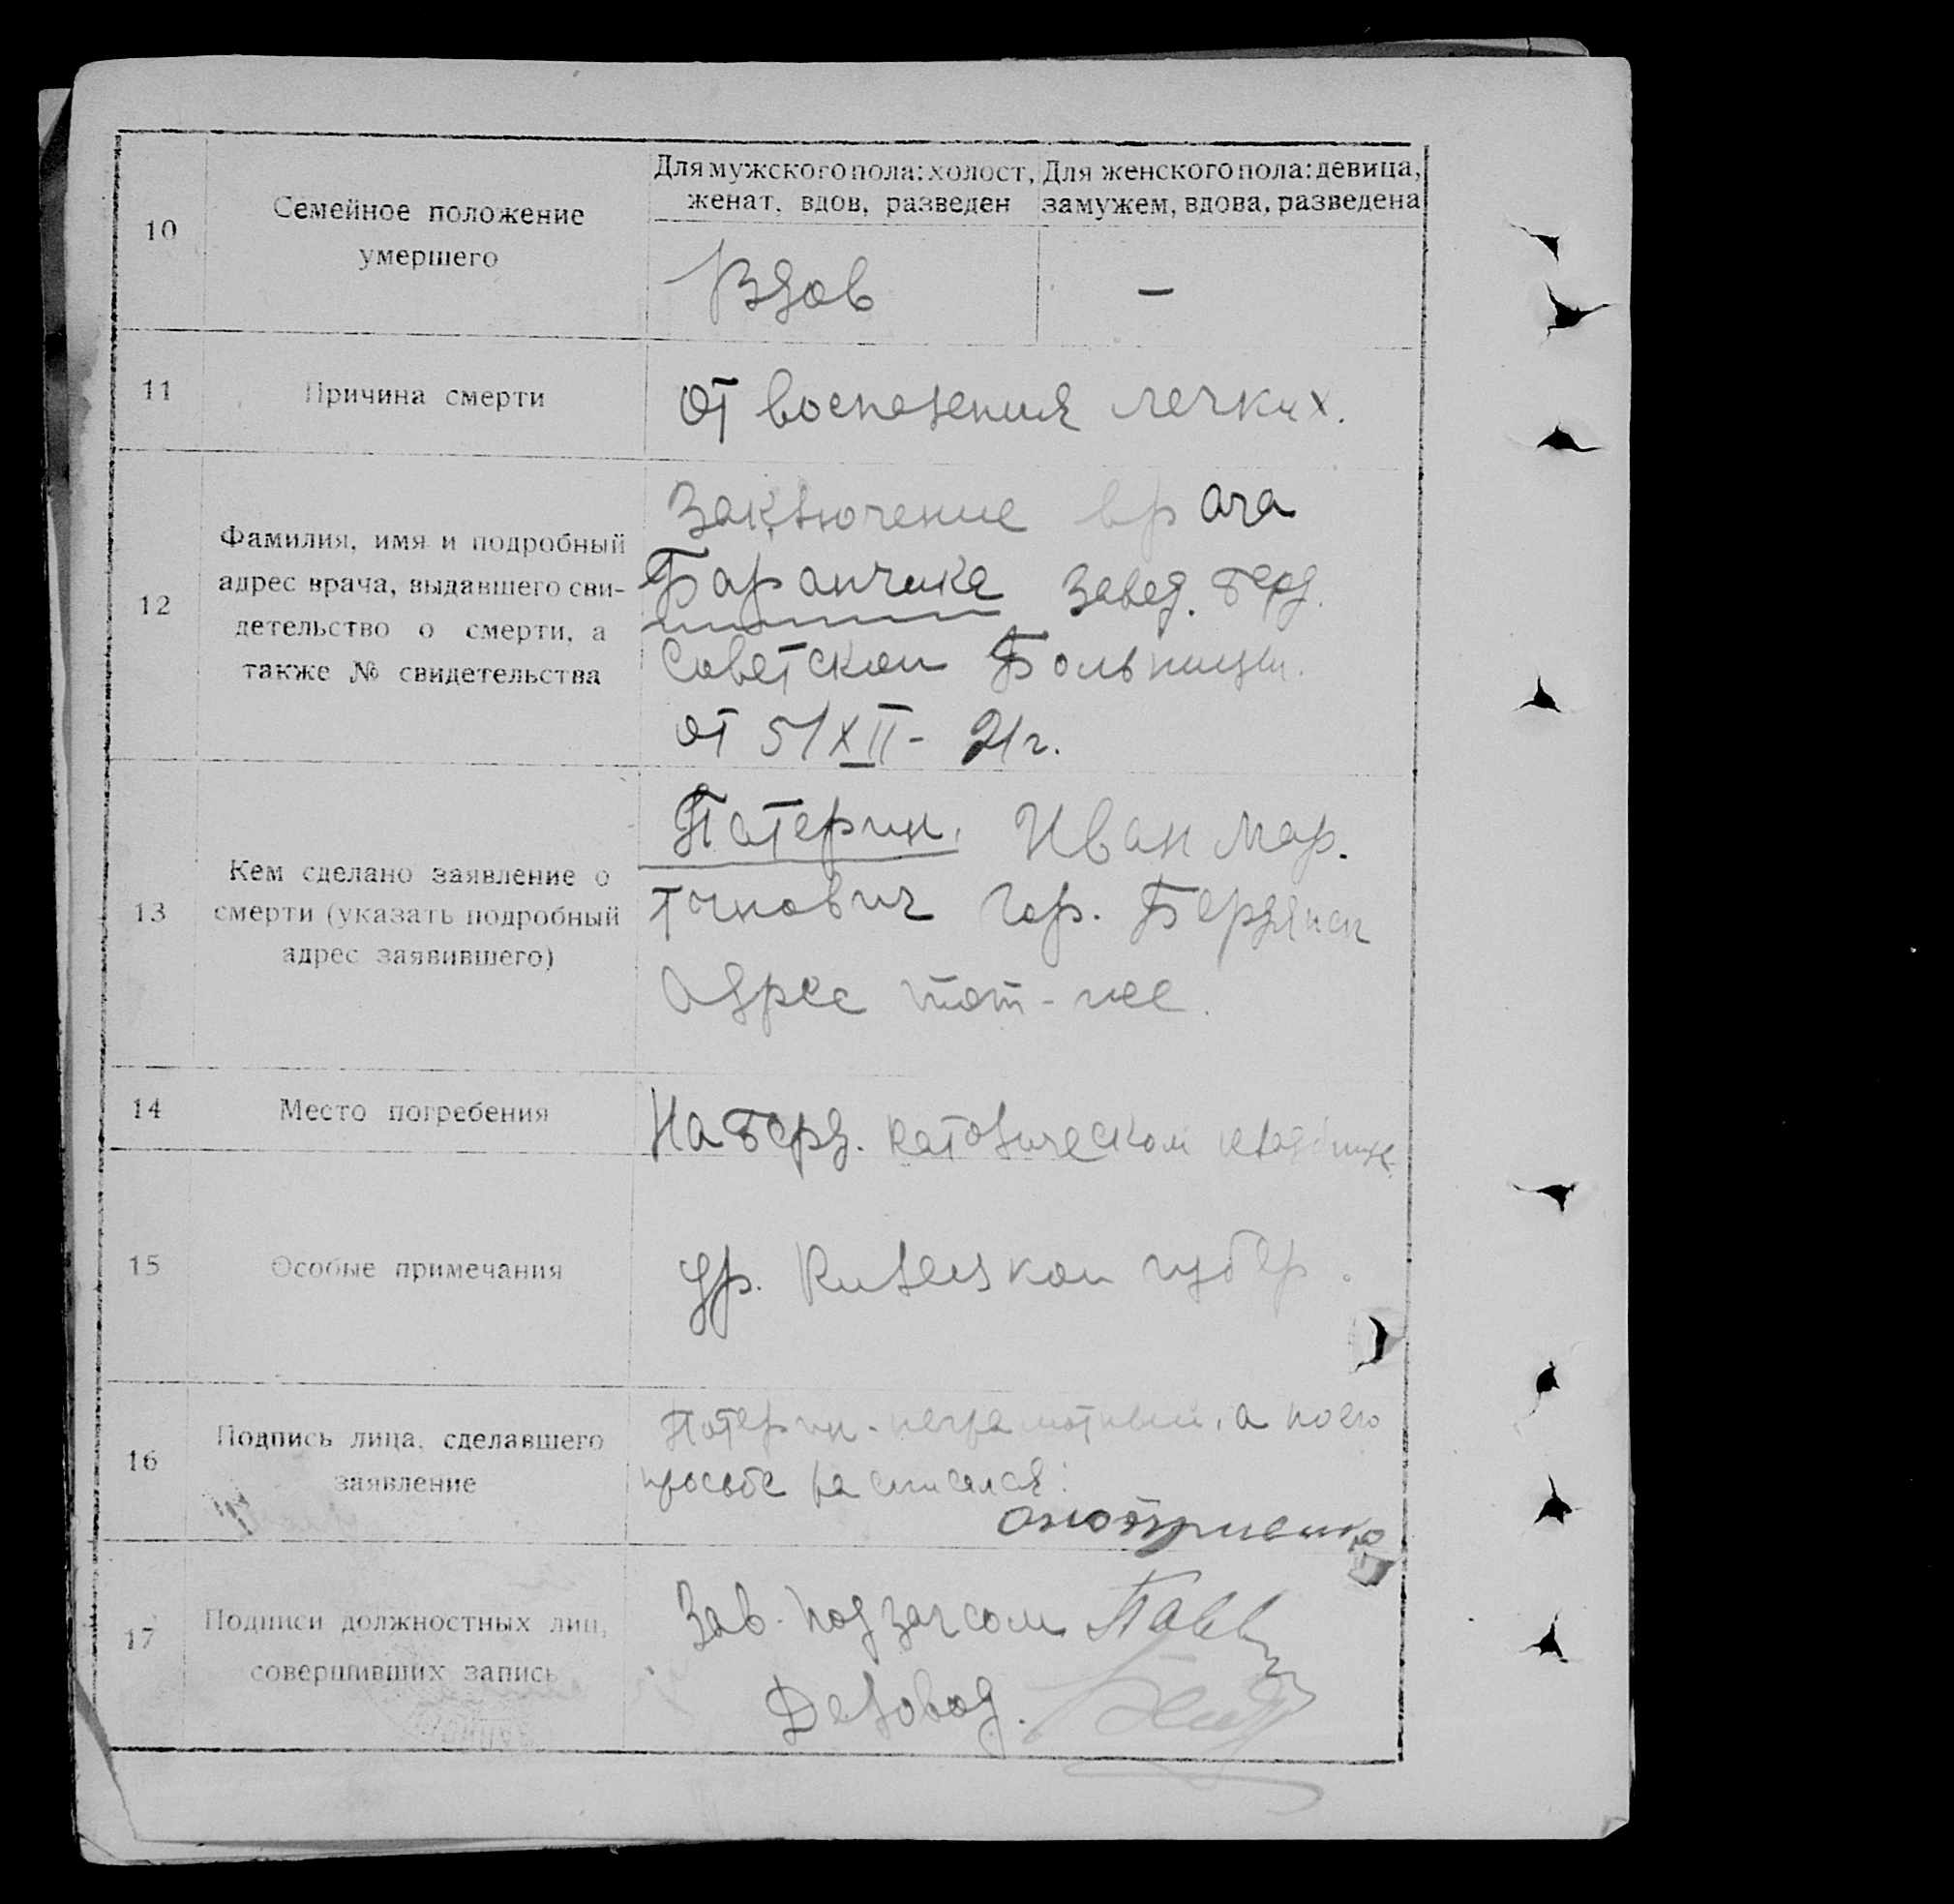 10
Семейное положение
умершего
Для мужского пола: холост,
женат, вдов, разведен
Для женского пола: девица,
замужем, вдова, разведена
Вдов
—
11
Причина смерти
от воспаления легких.
12
Фамилия, имя и подробный
адрес врача, выдавшего сви-
детельство о смерти, а
также № свидетельства
Заключение врача
Баранчика Завед. Берд.
Советской Больницы.
от 5/XII - 21г.
13
Кем сделано заявление о
смерти (указать подробный
адрес заявившего)
Патерин. Иван Мар.
тинович гор. Бердянск
Адрес тот-же.
14
Место погребения
На Берд. католическом кладбище
15
Особые примечания
гр. губер.
16
Подпись лица, сделавшего
заявление
Патерин - неграмотный, а по его
просьбе расписался:
17
Подписи должностных лиц,
совершивших запись
Зав. подзагсом
Деловод.